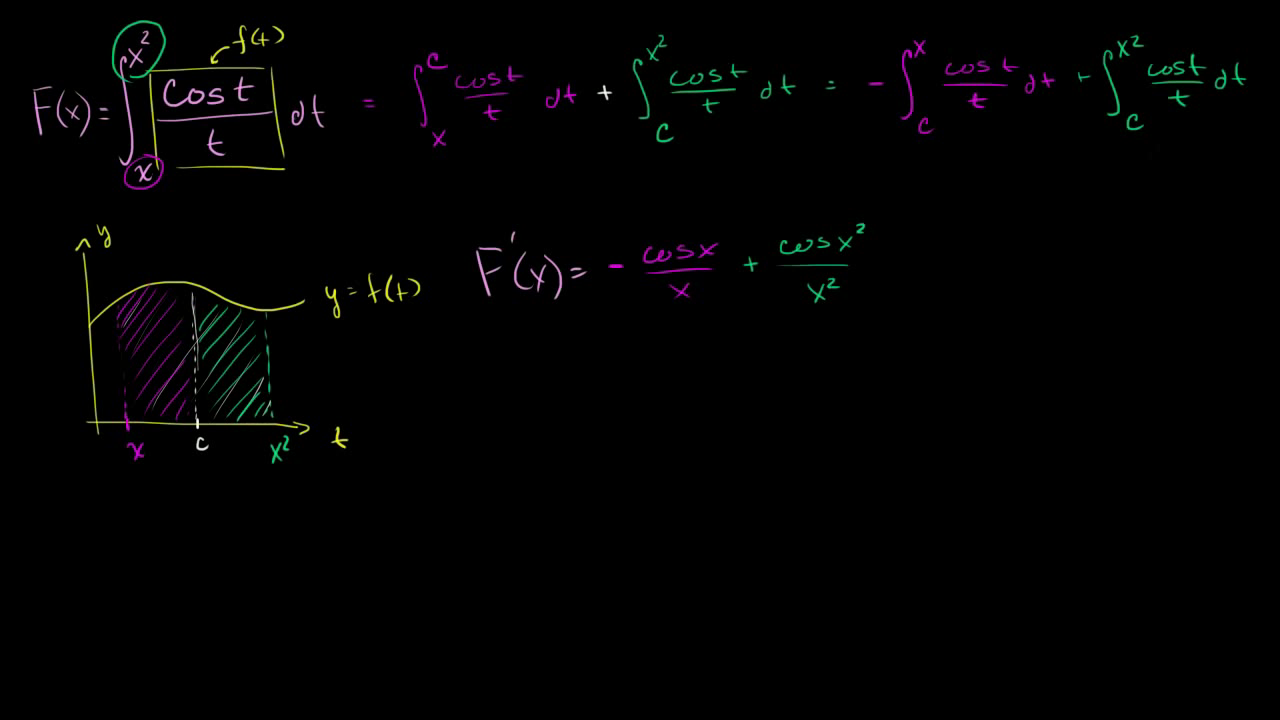 f(t)
F(x) = ∫_x^{x²} cos t / t dt = ∫_x^c cos t / t dt + ∫_c^{x²} cos t / t dt = - ∫_c^x cos t / t dt + ∫_c^{x²} cos t / t dt
y
F'(x) = - cos x / x + cos x² / x²
y = f(t)
t
x c x²